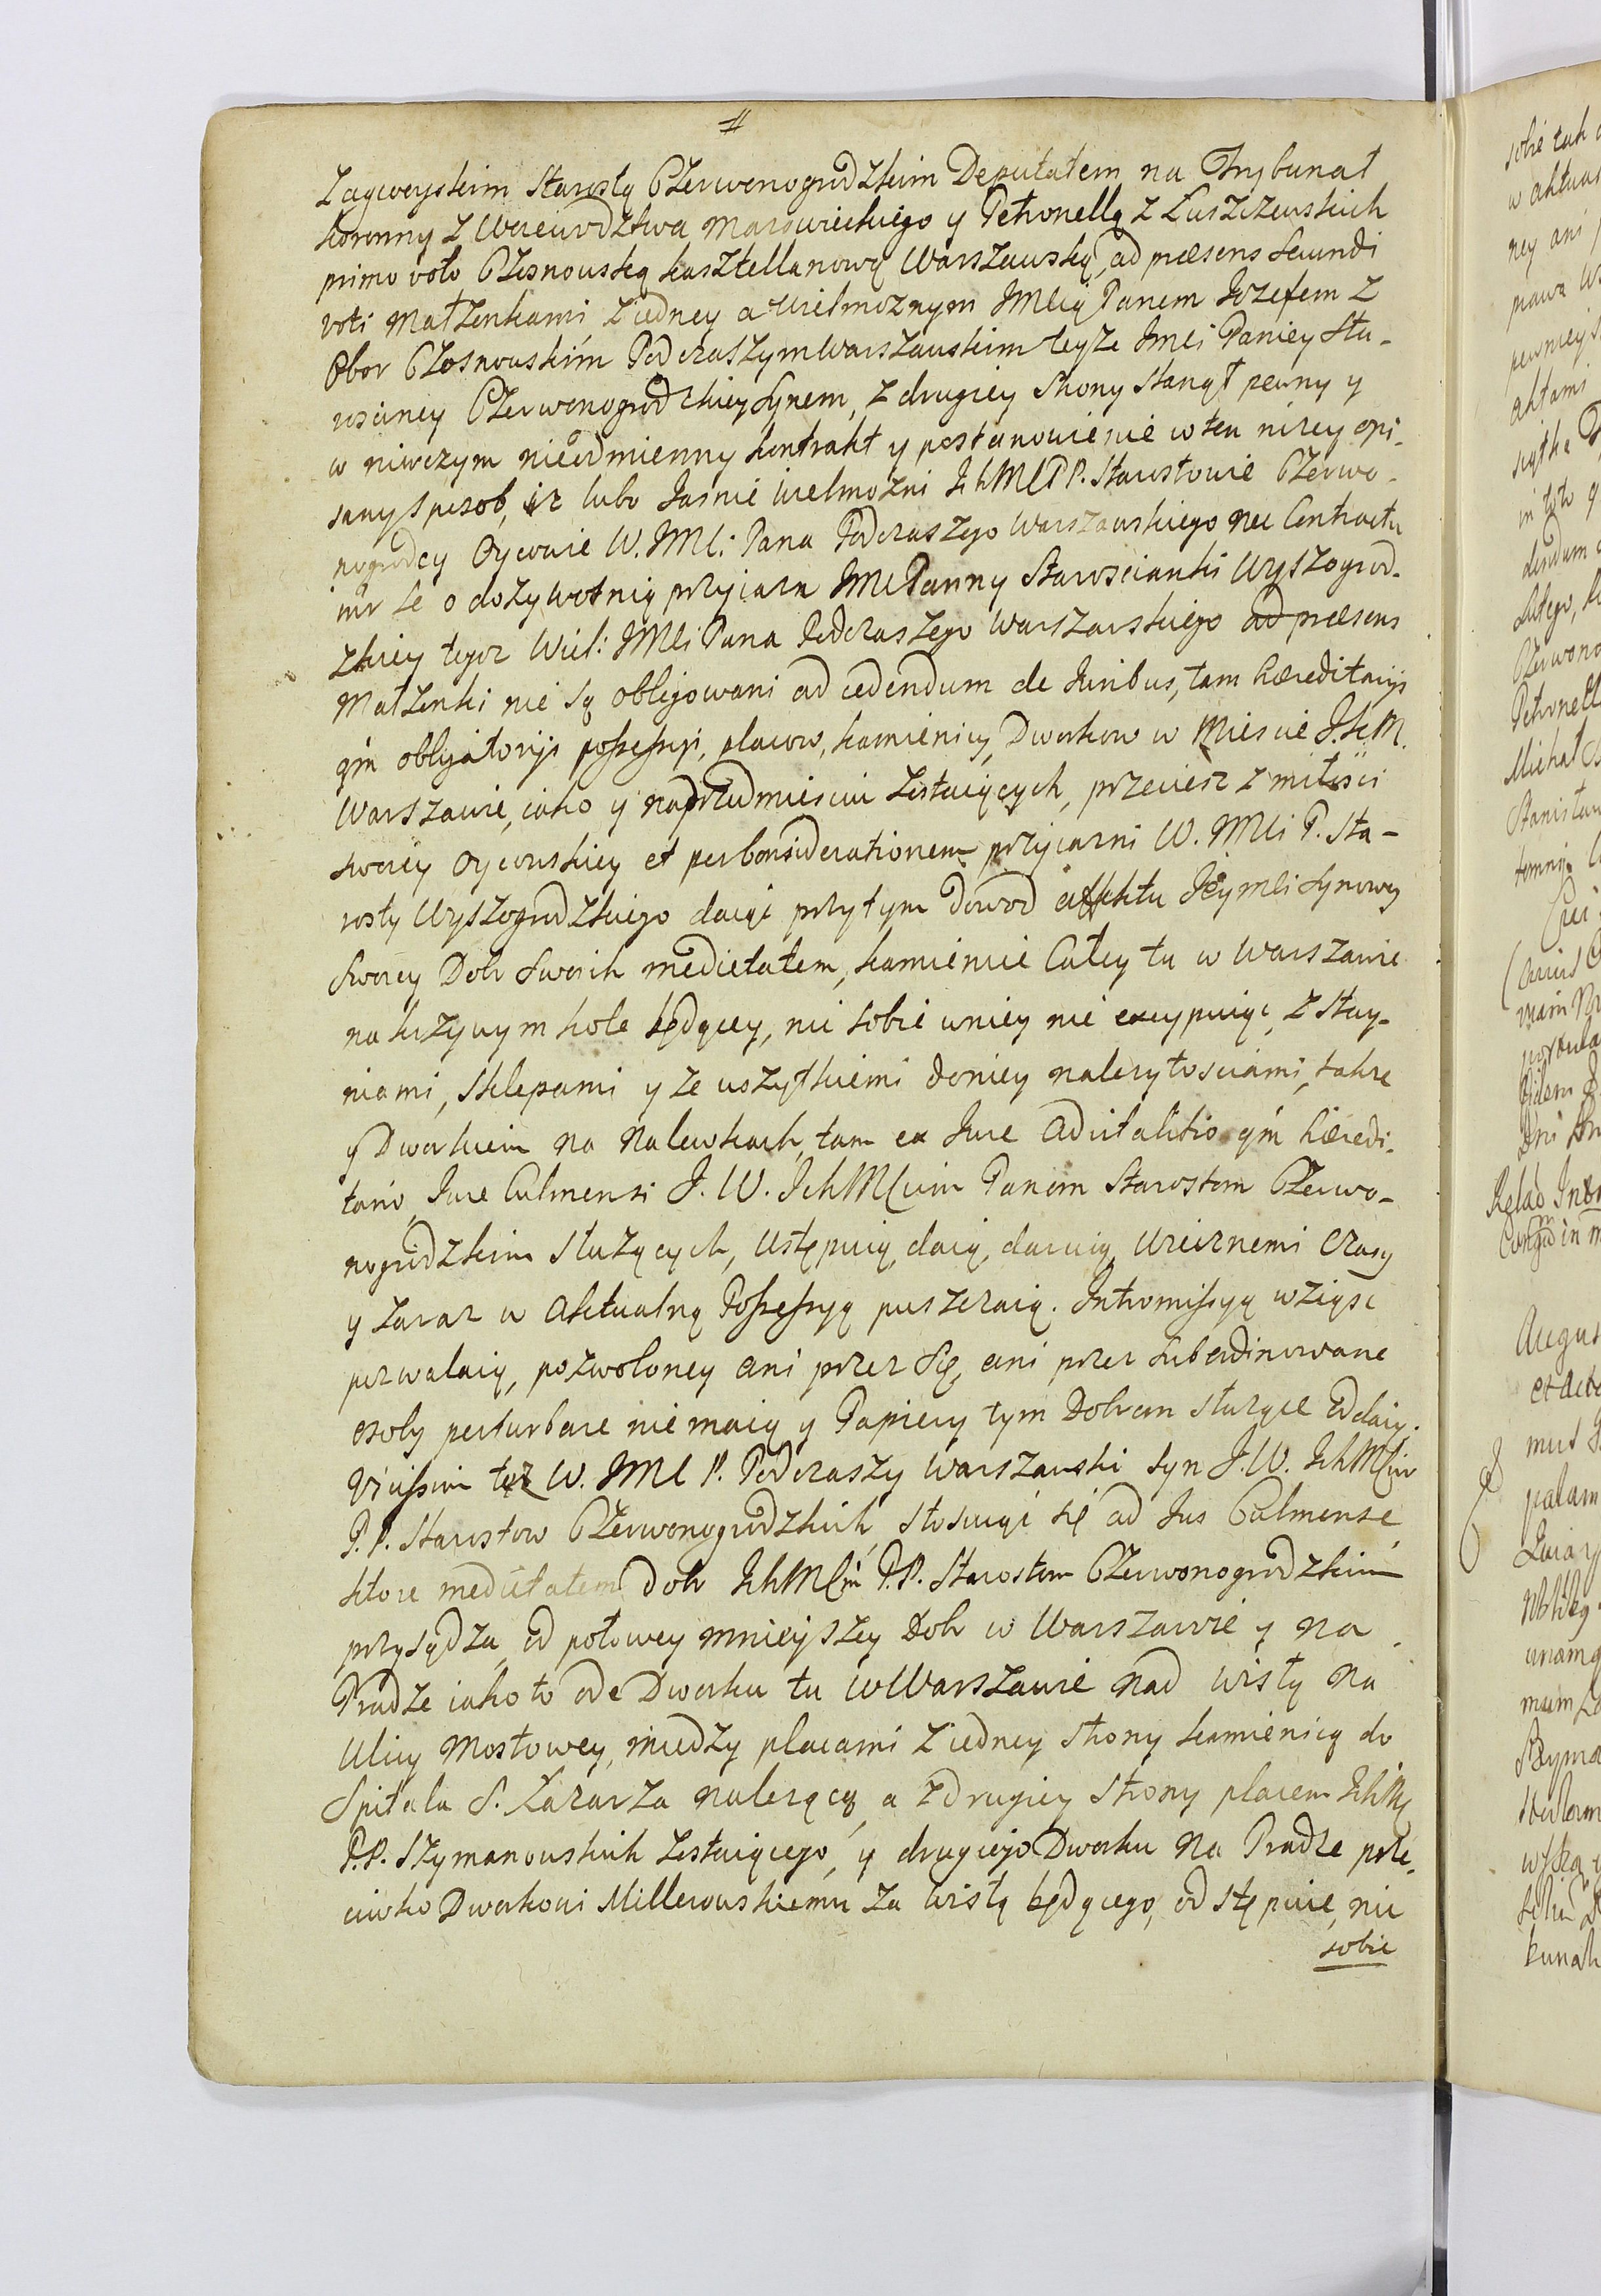 Zagwoyskim Starostą Czerwonogrodzkim Deputatem na Trybunał
Koronny z Woiewodztwa Mazowieckiego y Petronellą z Luszczewskich
primo voto Czosnowską Kasztellanową Warszawską, ad præsens secundi
voti Małżenkami, z iedney a Wielmoznym JMCią Panem Jozefem z
Obor Czosnowskim Podczaszym Warszawskim teyże Jmci Paniey Sta-
rosciney Czerwonogrodzkiey Synem, z drugiey Strony stanął pewny y
w niwczym nieodmienny kontrakt y postanowienie w ten nizey opi-
sany sposob, iż lubo Jasnie Wielmożni IchMC PP. Starostowie Czerwo-
nogrodcy Oycowie W. JMCi Pana Podczaszego Warszawskiego nec Contractu
o dożywotnią przyiazn JMC Panny Starościanki Wyszogrod-
zkiey tegoz Wiel: JMCi Pana Podczaszego Warszawskiego ad præsens
Małżenki nie są obligowani ad cedendum de Juribus, tam hæreditarijs
qm obligatorijs possessyi, placow, kamienicy, Dworkow w Miescie J.K.M.
Warszawie, iako y na przedmiesciu zostaiących, przecież z miłości
swoiey Oycowskiey et per considerationem przyiazni W. JMCi P. Sta-
rosty Wyszogrodzkiego daiąc przytym dowod affektu Jeymci Synowey
Swoiey Dobr Swoich medietatem, kamienice Całey tu w Warszawie
na krzywym kole będącey, nic sobie w niey nie excypuiąc, z stay-
niami, sklepami y ze wszytkiemi do niey nalezytosciami, takze
y Dworkiem na Nalewkach, tam ex Jure advitalitio qm hæredi-
tario, Jure Culmensi J.W. IchMCiom Panom Starostom Czerwo-
nogrodzkim Służących, Ustępuią, daią, daruią Wiecznemi Czasy
y zaraz w Aktualną Possessyą puszczaią. Intromissyą wziąść
pozwalaią, pozwoloney ani przez Się, ani przez subordinowane
osoby perturbare nie maią y Papiery tym Dobrom służące oddaią.
Vicissim też W. JMC P. Podczaszy Warszawski Syn J.W. IchMCiow
P.P. Starostow Czerwonogrodzkich, stosuiąc się ad Jus Culmense,
ktore medietatem dobr IchMCm P.P. Starostom Czerwonogrodzkim
przysądza, od połowey mnieyszey Dobr w Warszawie y na
Pradze iako to ode Dworku tu w Warszawie nad Wisłą na
Ulicy Mostowey, miedzy placami z iedney strony kamienicą do
Spitala S. Łazarza nalezącą, a z drugiey Strony placem IchMC
P.P. Szymanowskich zostaiącego, y drugiego Dworku na Pradze prze-
ciwko Dworkowi Millerowskiemu za Wisłą będącego, odstępuie, nic
sobie